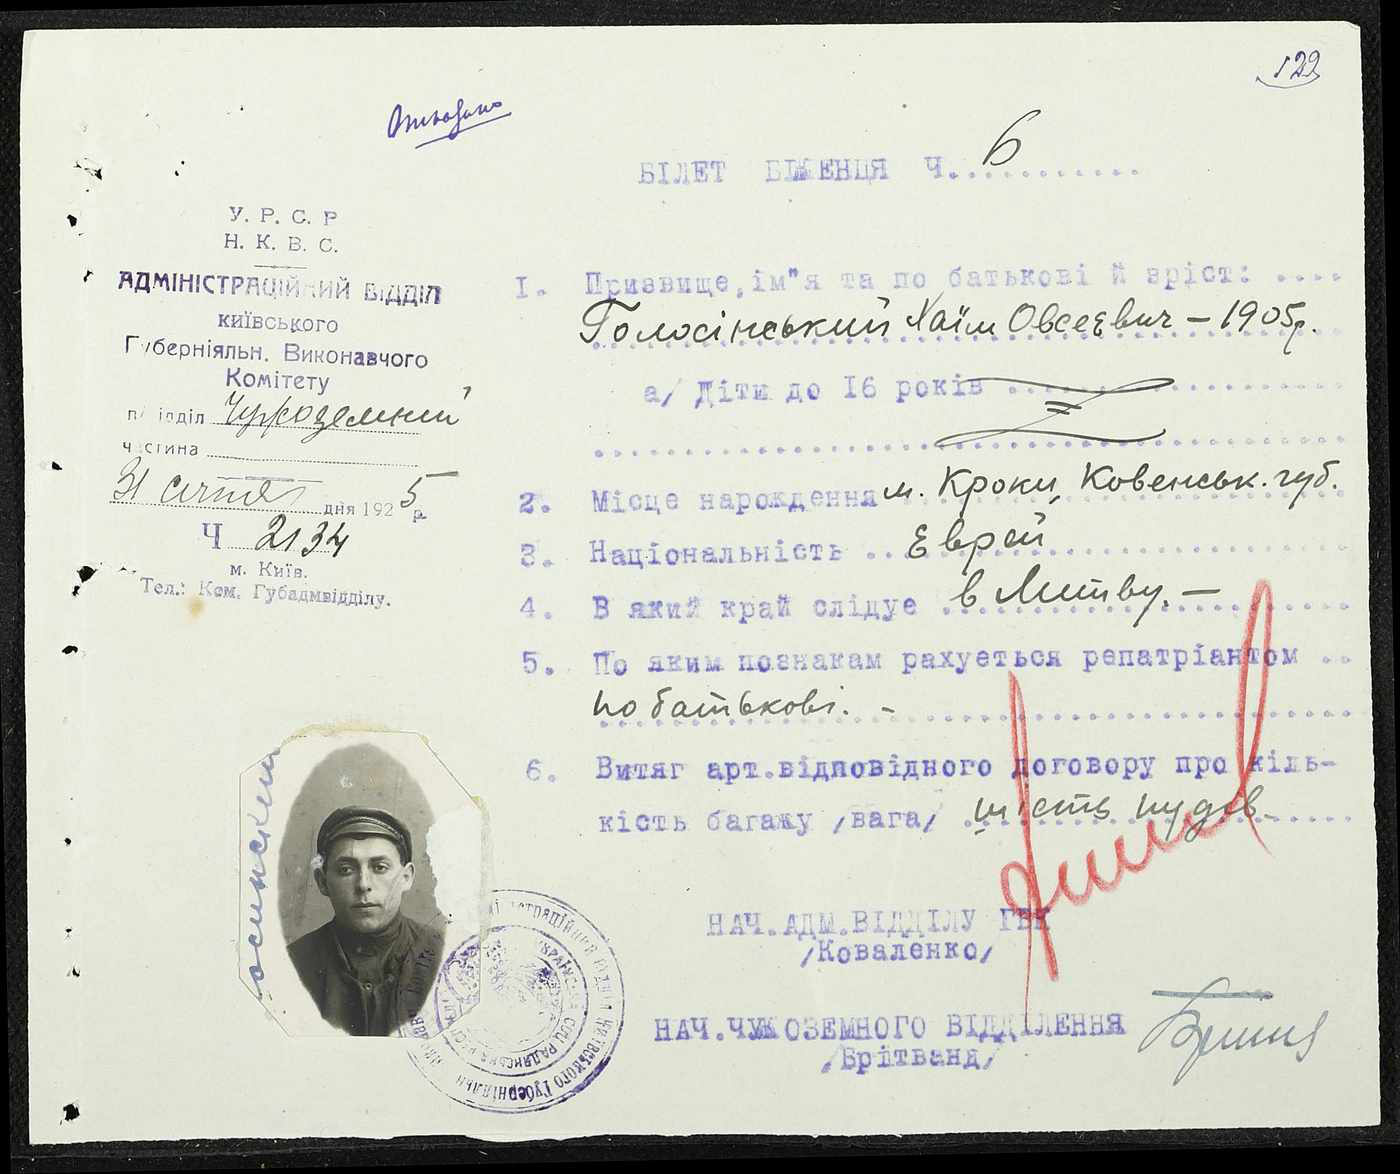 122
БІЛЕТ БІЖЕНЦЯ Ч. 6
У. Р. С. Р
Н. К. В. С.
АДМІНІСТРАЦІЙНИЙ ВІДДІЛ
КИЇВСЬКОГО
Губерніяльн. Виконавчого
Комітету
підвідділ Чужоземний
частина
31 січня дня 1925 р.
Ч 2134
м. Київ.
Тел.: Ком. Губадмвідділу.
1. Призвище, ім"я та по батькові й зріст:
Голосінський Хаїм Овсеєвич – 1905 р.
а/ Діти до 16 років
2. Місце нарождення м. Кроки, Ковенськ. губ.
3. Національність Еврей
4. В який край слідує в Литву. —
5. По яким познакам рахується репатріантом
по батькові. -
6. Витяг арт. відповідного договору про кіль-
кість багажу /вага/ шість пудов.
НАЧ. АДМ. ВІДДІЛУ ГВК
/Коваленко/
НАЧ. ЧУЖОЗЕМНОГО ВІДДІЛЕННЯ
/Брітванд/